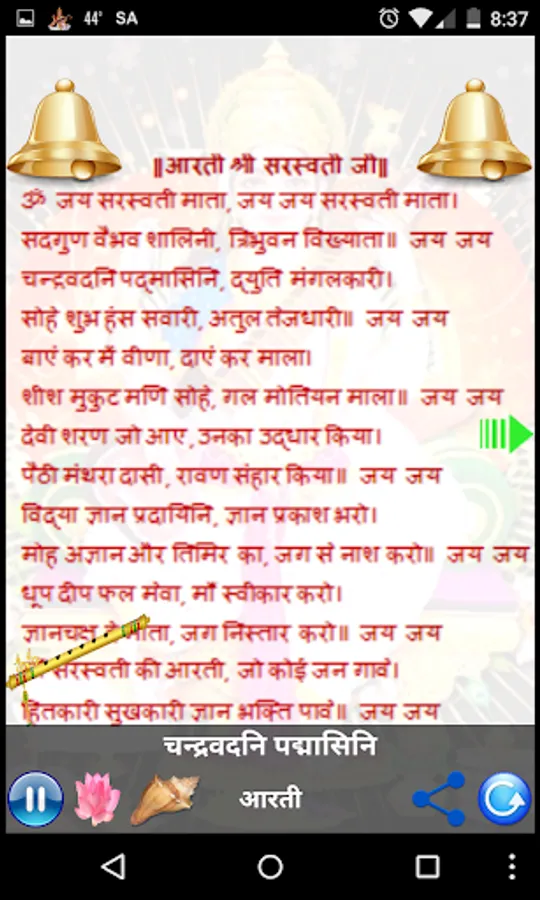 44° SA 8:37
॥आरती श्री सरस्वती जी॥
ॐ जय सरस्वती माता, जय जय सरस्वती माता।
सदगुण वैभव शालिनी, त्रिभुवन विख्याता॥ जय जय
चन्द्रवदनि पद्मासिनि, द्युति मंगलकारी।
सोहे शुभ हंस सवारी, अतुल तेजधारी॥ जय जय
बाएं कर में वीणा, दाएं कर माला।
शीश मुकुट मणि सोहे, गल मोतियन माला॥ जय जय
देवी शरण जो आए, उनका उद्धार किया।
पैठी मंथरा दासी, रावण संहार किया॥ जय जय
विद्या ज्ञान प्रदायिनि, ज्ञान प्रकाश भरो।
मोह अज्ञान और तिमिर का, जग से नाश करो॥ जय जय
धूप दीप फल मेवा, माँ स्वीकार करो।
ज्ञानचक्षु माता, जग निस्तार करो॥ जय जय
सरस्वती की आरती, जो कोई जन गावें।
हितकारी सुखकारी ज्ञान भक्ति पावें॥ जय जय
चन्द्रवदनि पद्मासिनि
आरती